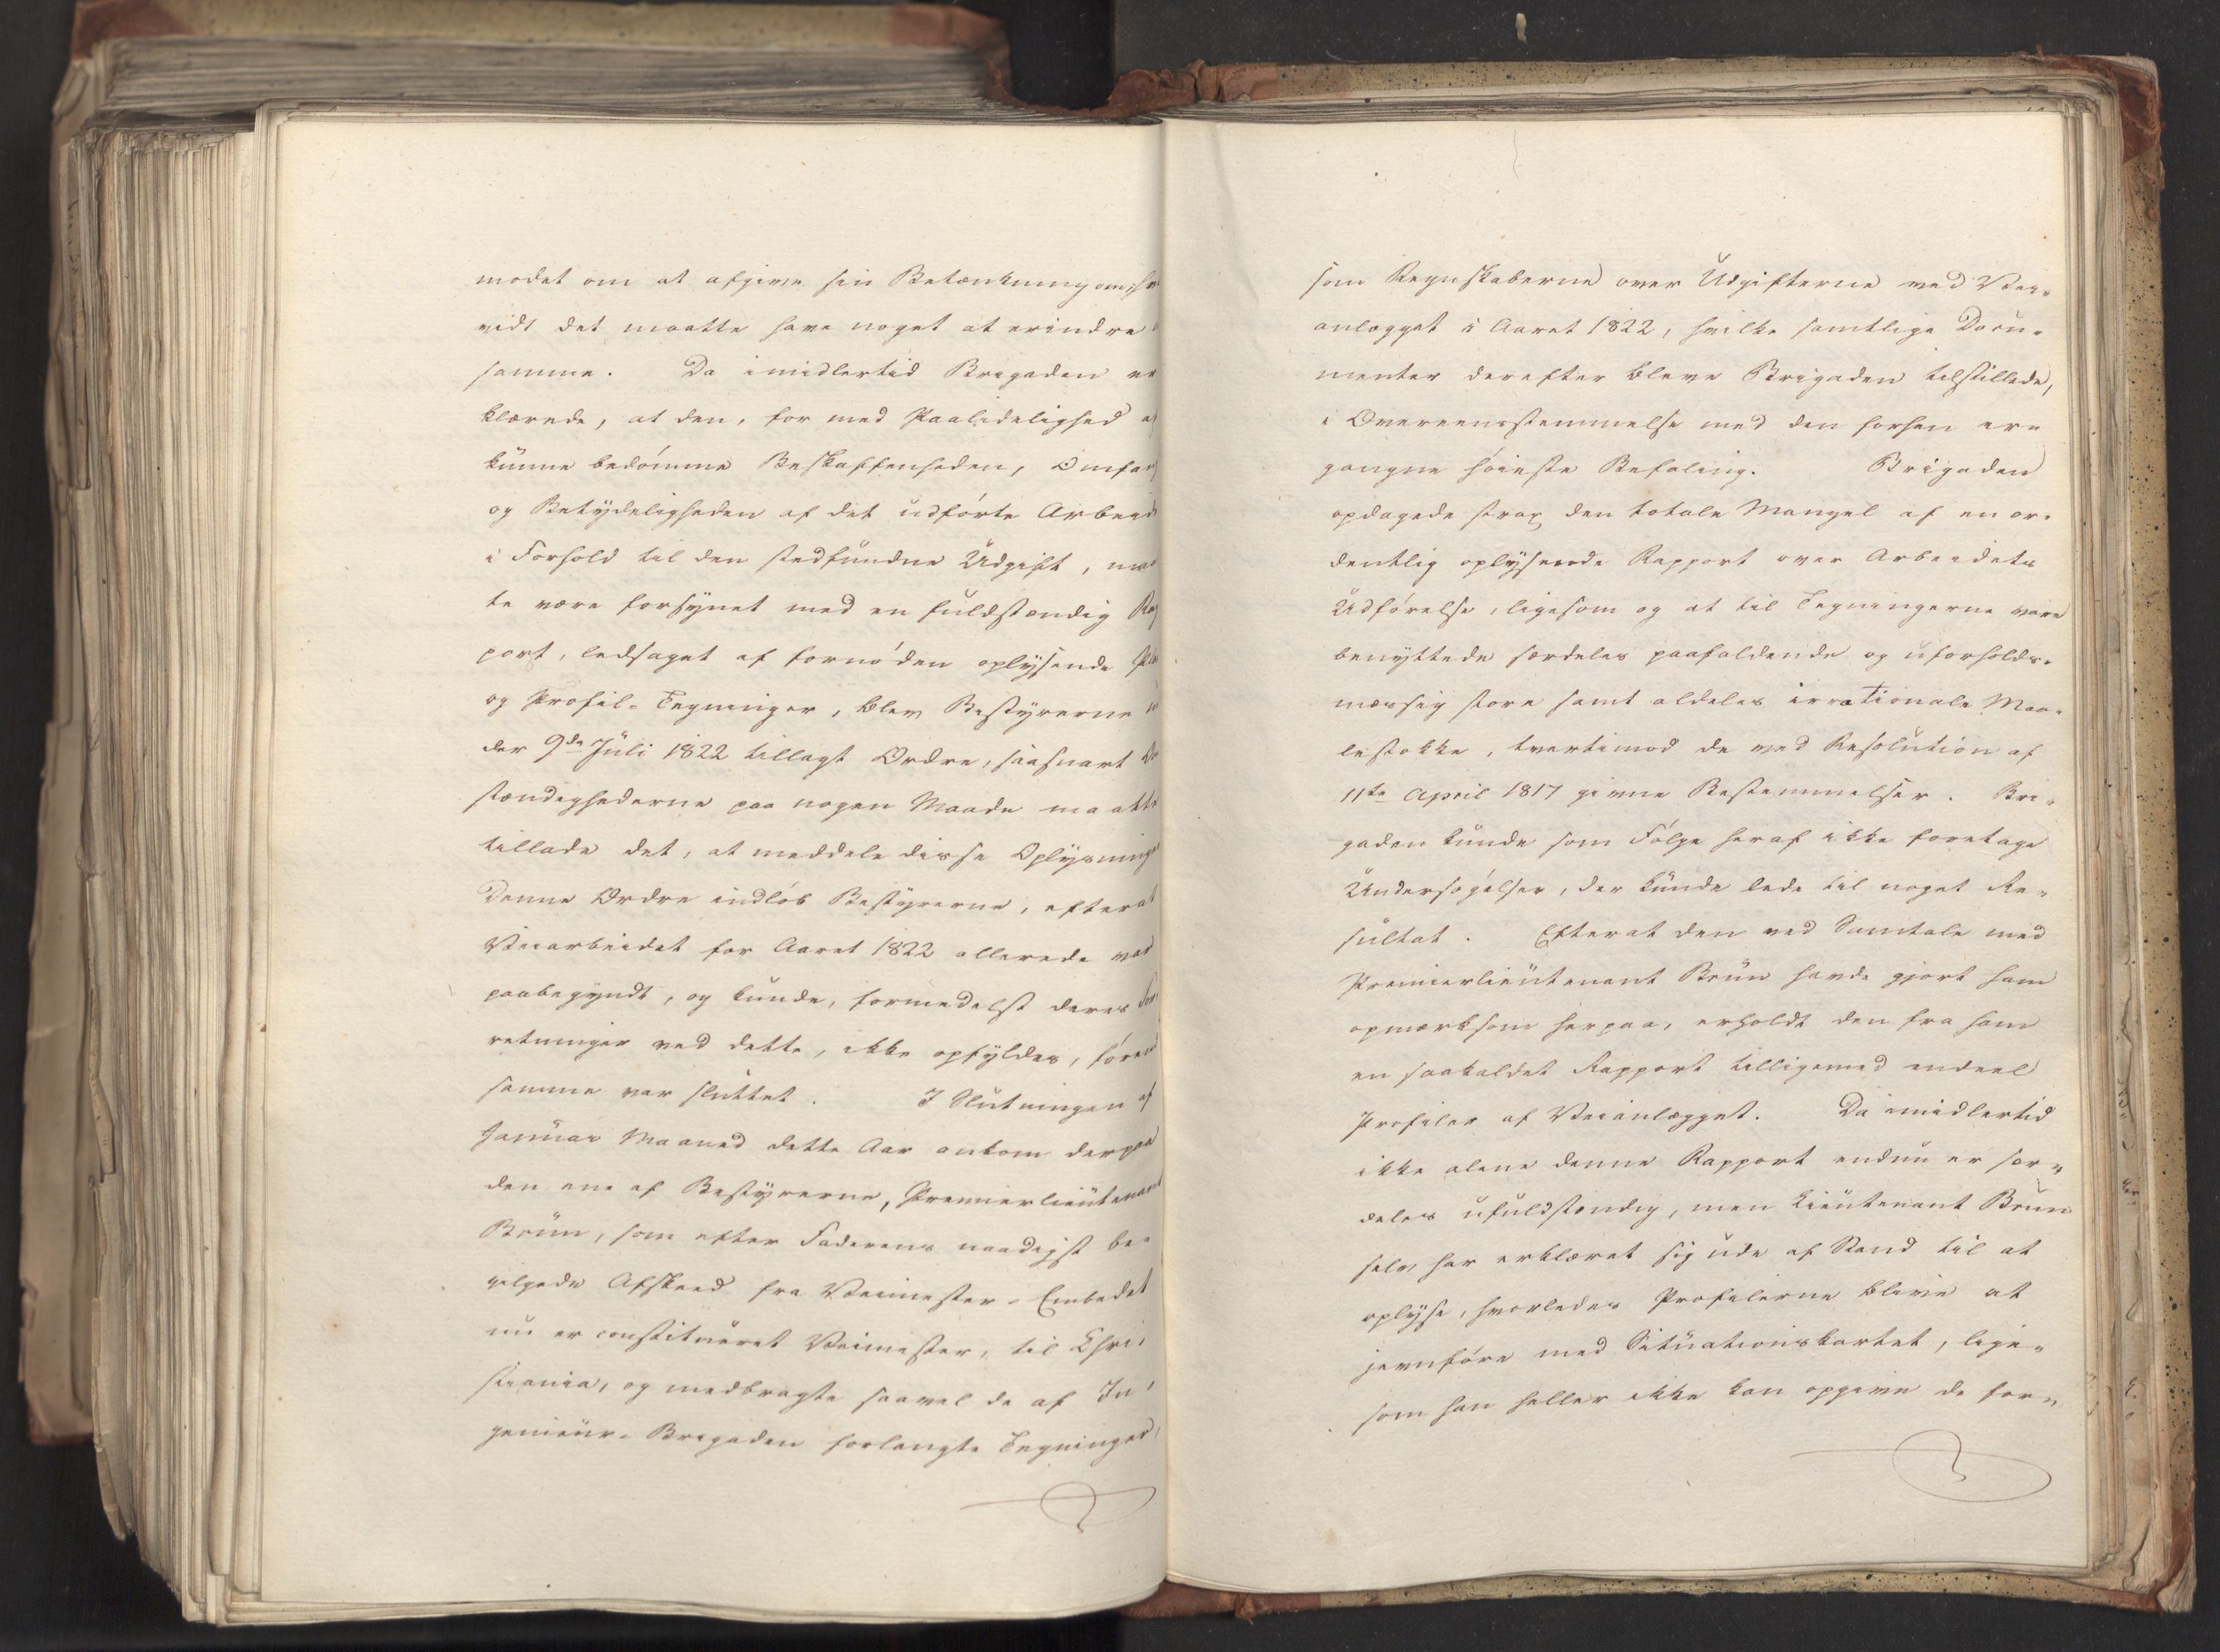 modet om at afgive sin Betænkning om, hvor
vidt det maatte have noget at erindre
samme. Da imidlertid Brigaden er
klærede, at den, for med Paalidelighed
kunne bedømme Beskaffenheden, Omfang
og Betydeligheden af det udførte Arbeide
i Forhold til den stedfundne Udgift, maa
te være forsynet med en fuldstændig Rap
port, ledsaget af fornøden oplysende Plan
og Profil-Tegninger, blev Bestyrerne
der 9de Juli 1822 tillagt Ordre, saasnart
stændighederne paa nogen Maade maatte
tillade det, at meddele disse Oplysninger
Denne Ordre indløb Bestyrerne, efterat
Veiarbeidet for Aaret 1822 allerede var
paabegyndt, og kunde, formedelst deres For
retninger ved dette, ikke opfyldes, førend
samme var sluttet. I Slutningen af
Januar Maaned dette Aar ankom derpaa
den ene af Bestyrerne, Premierlieutenant
Brun, som efter Faderens naadigst be-
vilgede Afskeed fra Veimester-Embedet
nu er constitueret Veimester, til Chri-
stiania, og medbragte saavel de af In-
genieur-Brigaden forlangte Tegninger,
som Regnskaberne over Udgifterne ved Vei-
anlægget i Aaret 1822, hvilke samtlige Docu-
menter derefter bleve Brigaden tilstillede,
i Overeensstemmelse med den forhen er-
gangne høieste Befaling. Brigaden
opdagede strax den totale Mangel af en or-
dentlig oplysende Rapport over Arbeidets
Udførelse, ligesom og at til Tegningerne vare
benyttede særdeles paafaldende og uforholds-
mæssig store samt aldeles irrationale Maa-
lestokke, tvertimod de ved Resolution af
11te April 1817 givne Bestemmelser. Bri-
gaden kunde som Følge heraf ikke foretage
Undersøgelser, der kunde lede til noget Re-
sultat. Efterat den ved Samtale med
Premierlieutenant Brun havde gjort ham
opmærksom herpaa, erholdt den fra ham
en saakaldet Rapport tilligemed endeel
Profiler af Veianlægget. Da imidlertid
ikke alene denne Rapport endnu er sær-
deles ufuldstændig, men Lieutenant Brun
selv har erklæret sig ude af Stand til at
oplyse, hvorledes Profilerne blive at
jevnføre med Situationskartet, lige-
som han heller ikke kan opgive de for-